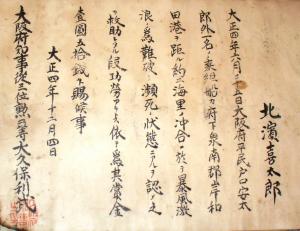 北濱喜太郎
大正四年六月二十五日大阪府平民戸口安太
郎外一名ノ乗組船カ府下泉南郡岸和
田港ヲ距ル約三海里ノ沖合ニ於テ暴風激
浪ノ為難破シ瀕死ノ状態ニアルヲ認メ之
ヲ救助シタル段功勞アリトス依テ為其賞金
壹圓五拾錢下賜候事
大正四年十二月四日
大阪府知事従三位勲二等大久保利武